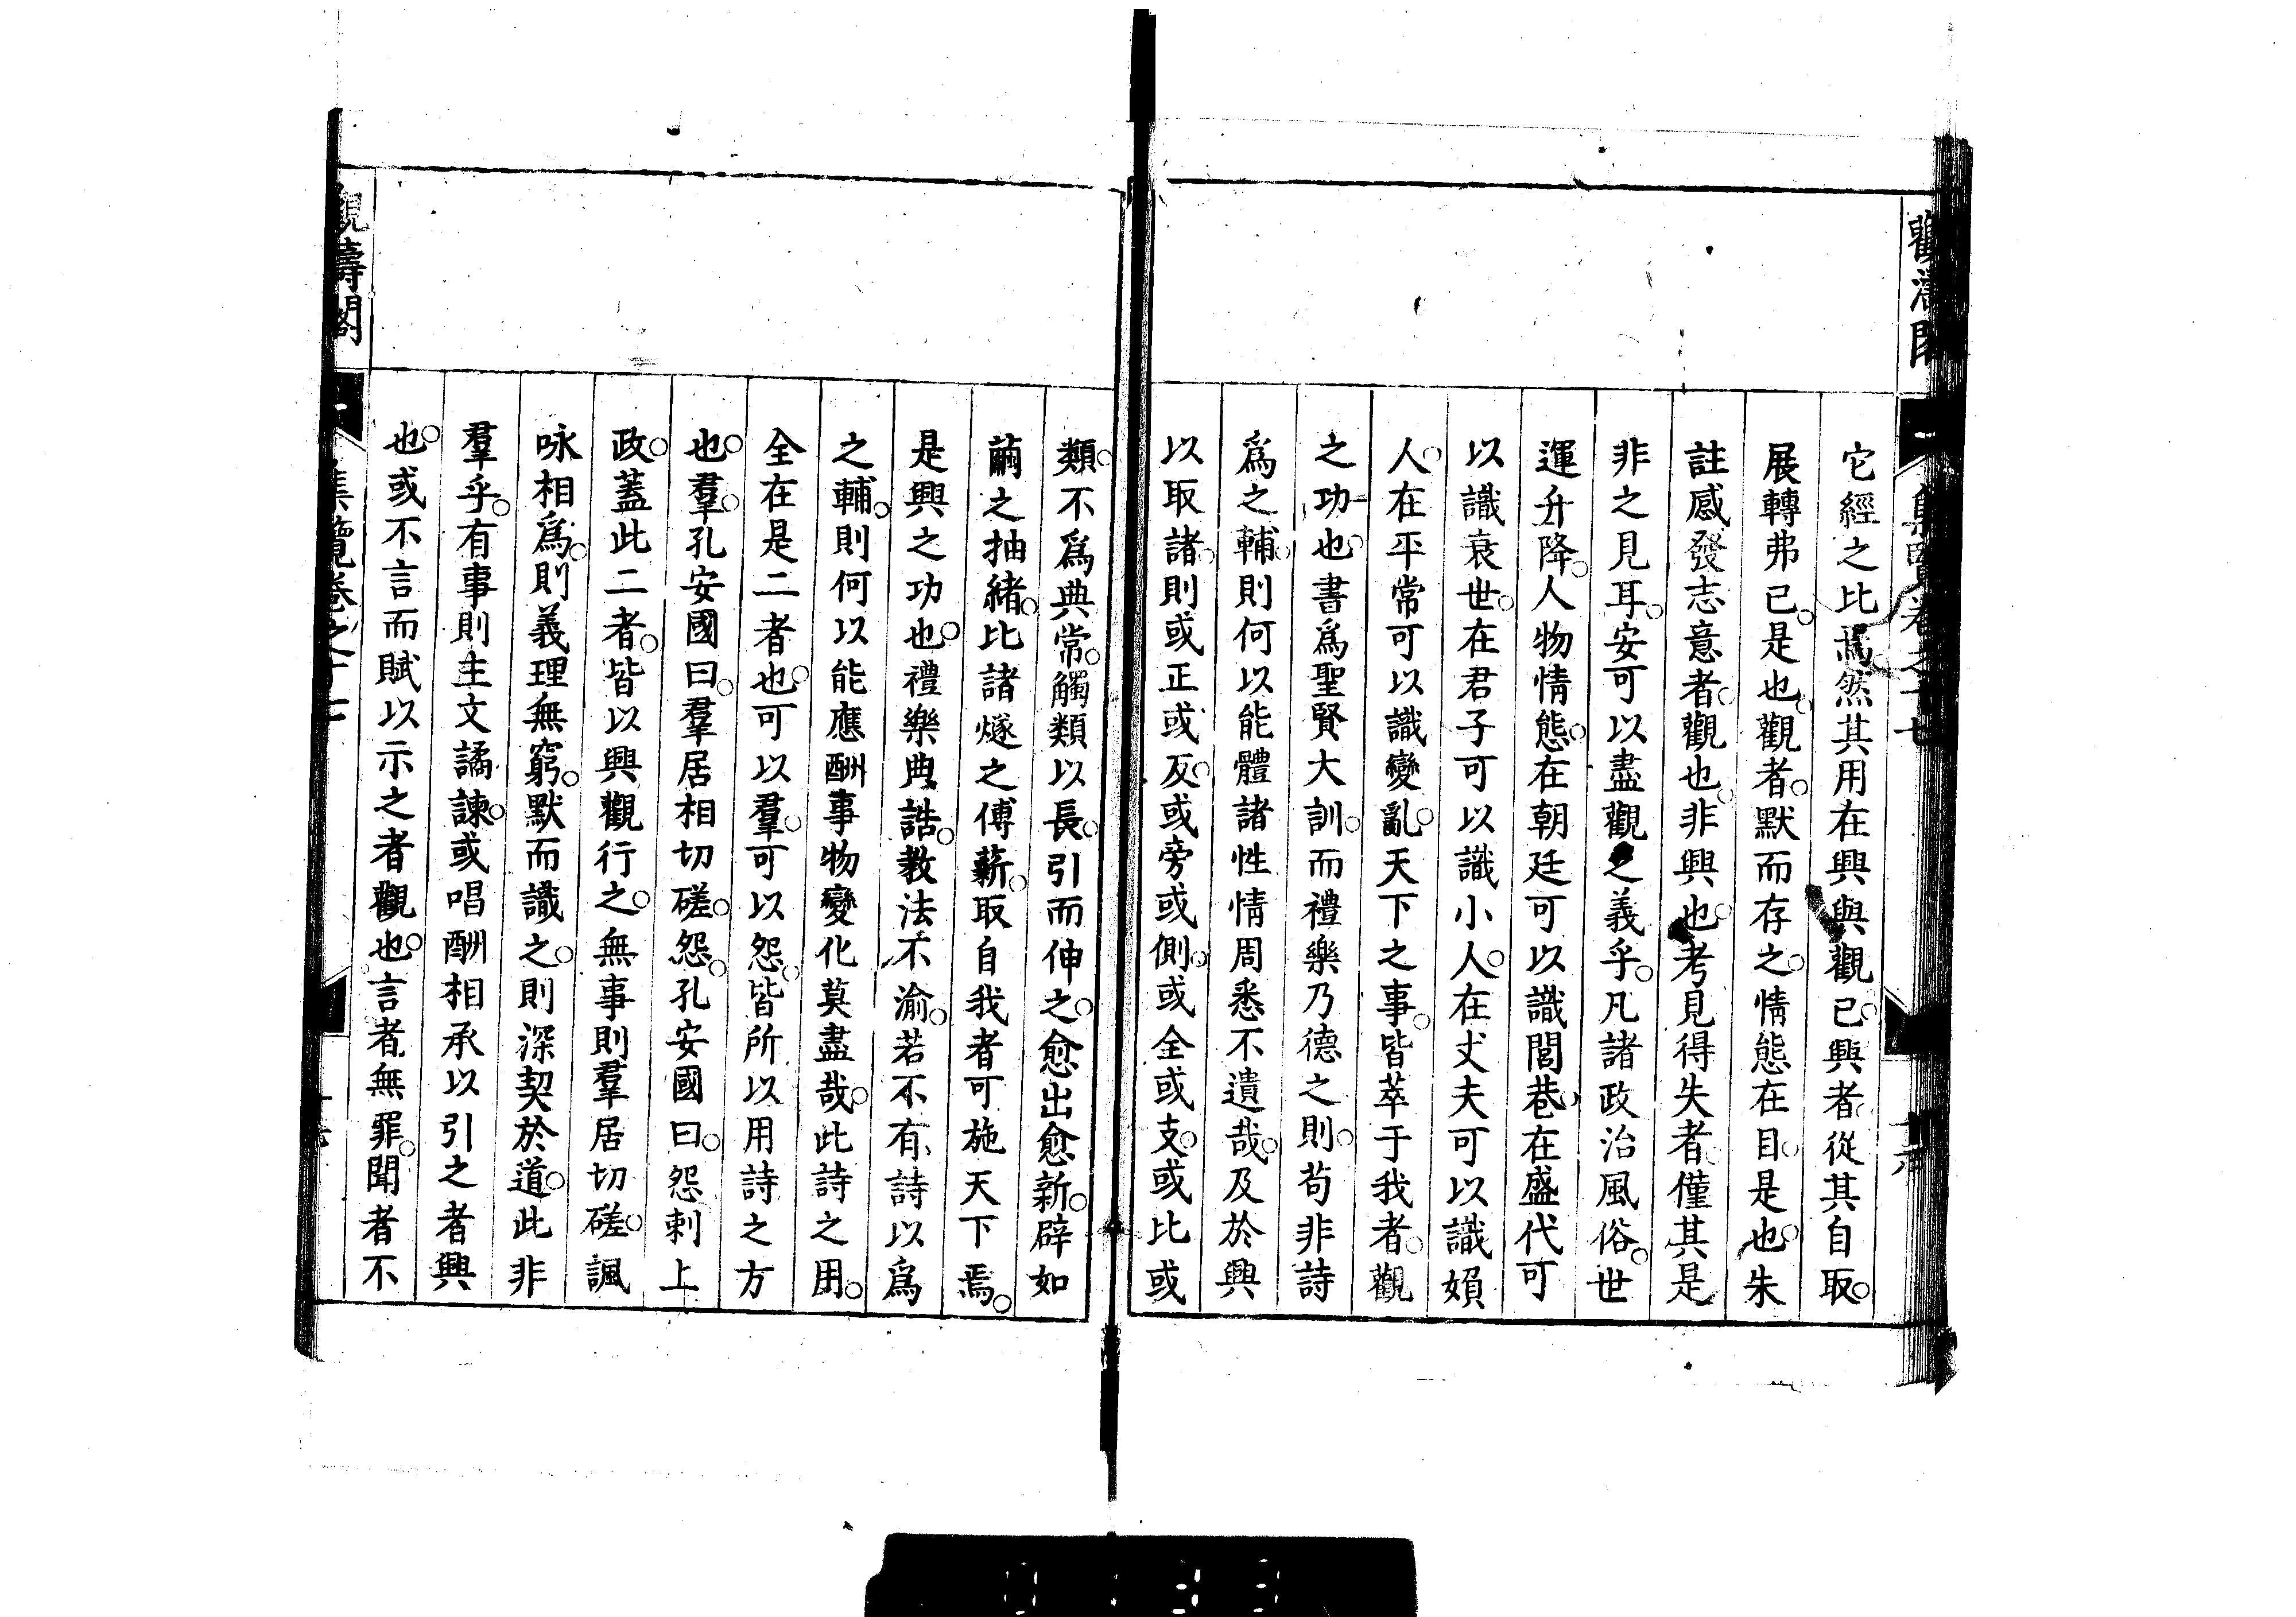 它經之比焉然其用在興與觀已興者從其自取
展轉弗已是也觀者默而存之情態在目是也朱
註感發志意者觀也非興也考見得失者僅其是
非之見耳安可以盡觀之義乎凡諸政治風俗世
運升降人物情態在朝廷可以識閭巷在盛代可
以識衰世在君子可以識小人在丈夫可以識媍
人在平常可以識變亂天下之事皆萃于我者觀
之功也書爲聖賢大訓而禮樂乃德之則苟非詩
爲之輔則何以能體諸性情周悉不遺哉及於興
以取諸則或正或反或旁或側或全或支或比或
類不爲典常觸類以長引而伸之愈出愈新辟如
繭之抽緒比諸燧之傅薪取自我者可施天下焉
是興之功也禮樂典誥教法不渝若不有詩以爲
之輔則何以能應酬事物變化莫盡哉此詩之用
全在是二者也可以羣可以怨皆所以用詩之方
也羣孔安國曰羣居相切磋怨孔安國曰怨刺上
政蓋此二者皆以興觀行之無事則羣居切磋諷
咏相爲則義理無窮默而識之則深契於道此非
羣乎有事則主文譎諫或唱酬相承以引之者興
也或不言而賦以示之者觀也言者無罪聞者不
集覽卷之十七